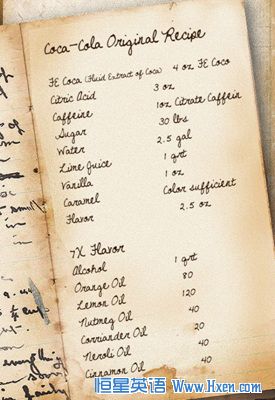 Coca-Cola Original Recipe
FE Coca (Fluid Extract of Coca) 4 oz FE Coco
Citric Acid 3 oz
Caffeine 1oz Citrate Caffein
Sugar 30 lbs
Water 2.5 gal
Lime Juice 1 qrt
Vanilla 1 oz
Caramel Color sufficient
Flavor 2.5 oz
7X Flavor
Alcohol 1 qrt
Orange Oil 80
Lemon Oil 120
Nutmeg Oil 40
Corriander Oil 20
Neroli Oil 40
Cinnamon Oil 40
恒星英语 Www.Hxen.com